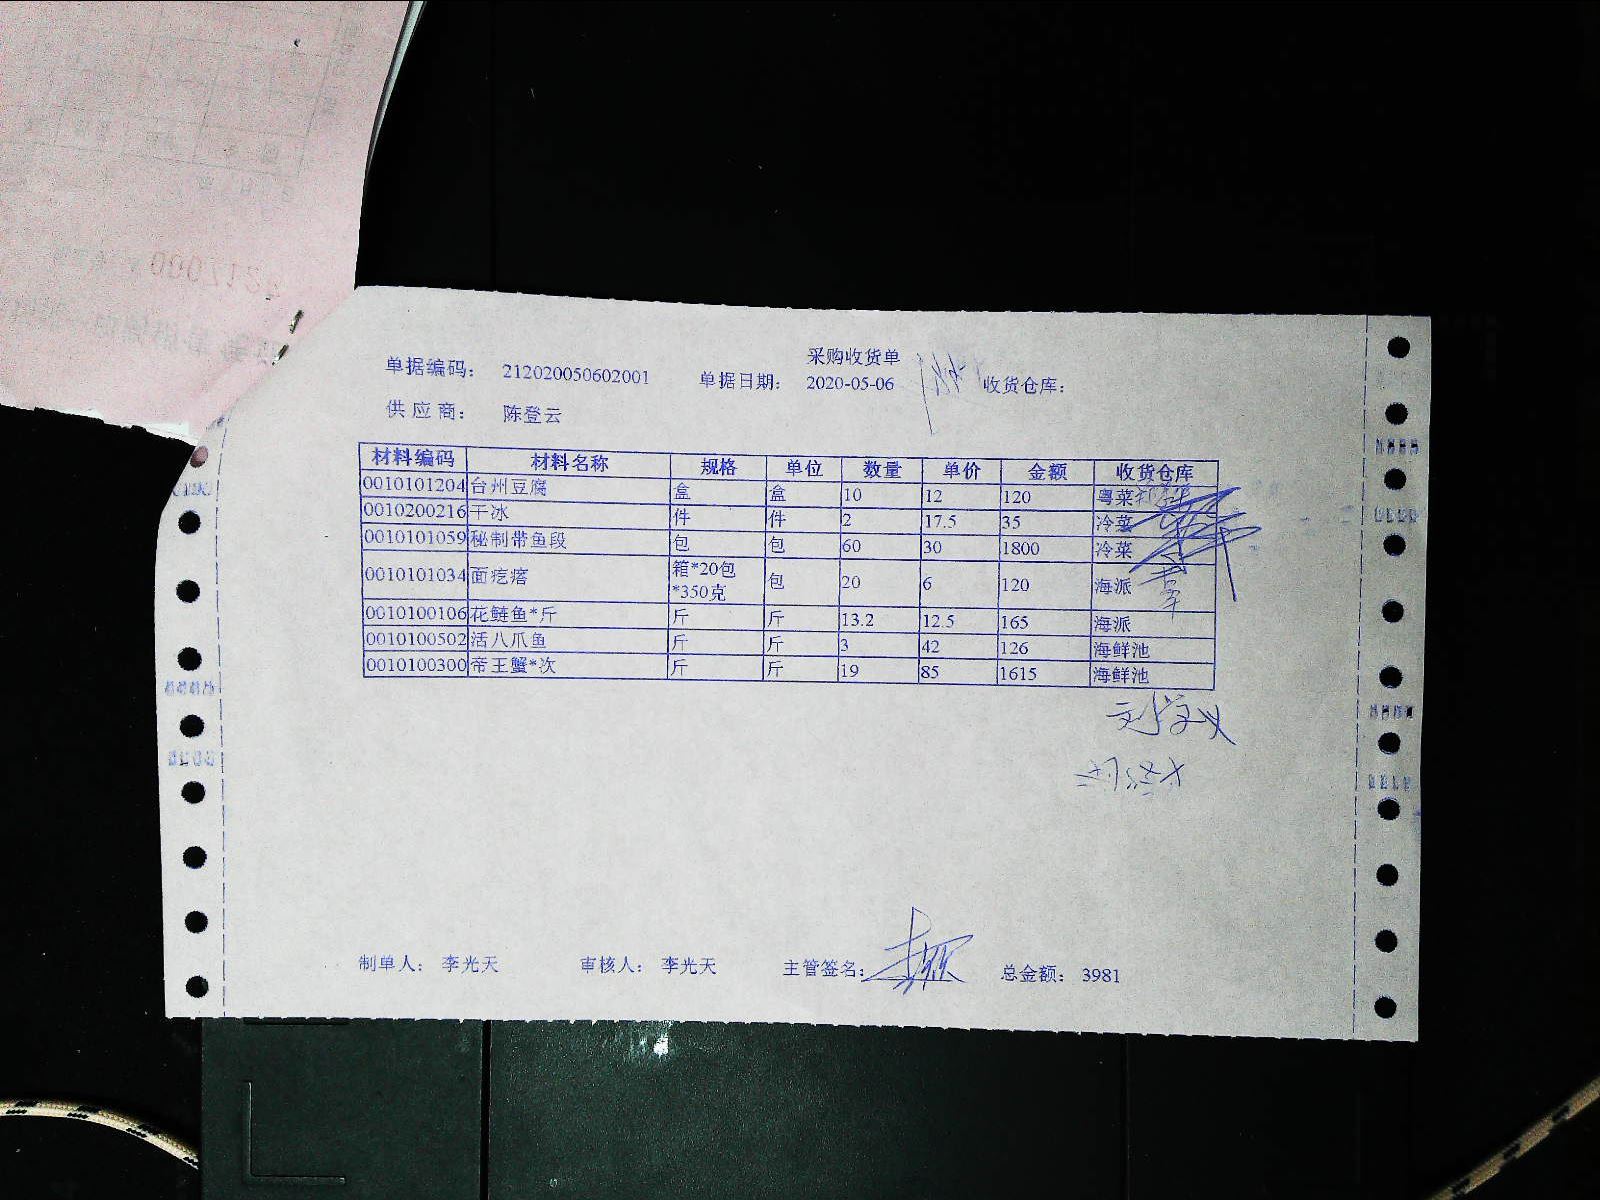 采购收货单
单据编码： 212020050602001 单据日期： 2020-05-06 收货仓库：
供应商： 陈登云
材料编码 材料名称 规格 单位 数量 单价 金额 收货仓库
0010101204 台州豆腐 盒 盒 10 12 120 粤菜
0010200216 干冰 件 件 2 17.5 35 冷菜
0010101059 秘制带鱼段 包 包 60 30 1800 冷菜
0010101034 面疙瘩 箱*20包*350克 包 20 6 120 海派
0010100106 花鲢鱼*斤 斤 斤 13.2 12.5 165 海派
0010100502 活八爪鱼 斤 斤 3 42 126 海鲜池
0010100300 帝王蟹*次 斤 斤 19 85 1615 海鲜池
制单人： 李光天 审核人： 李光天 主管签名： 总金额： 3981